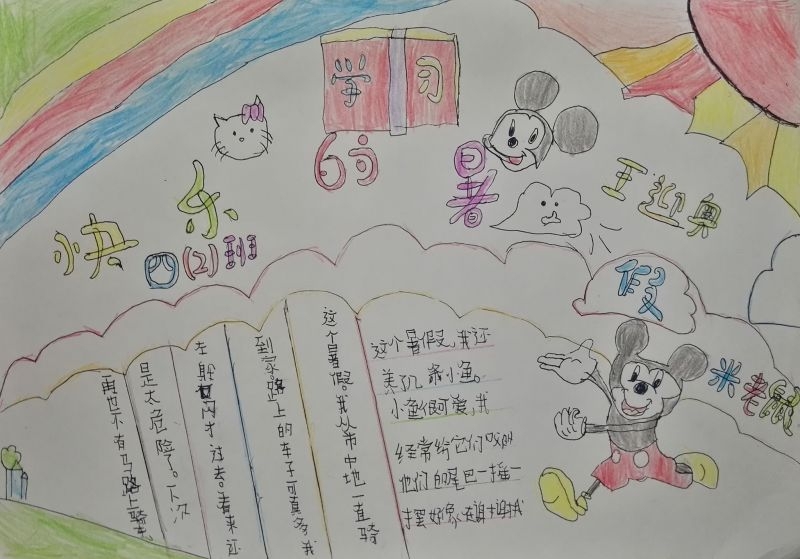 学习
快乐的暑假
四(2)班
王迎奥
米老鼠
这个暑假,我还
几条小鱼。
小鱼很可爱,我
经常给它们
他们的尾巴一摇一
摆好像在谢谢我
这个暑假。我从市中地一直骑
到家路上的车子可真多我
左躲才过去。看来还
是太危险了。下次
再也不有马路上骑车